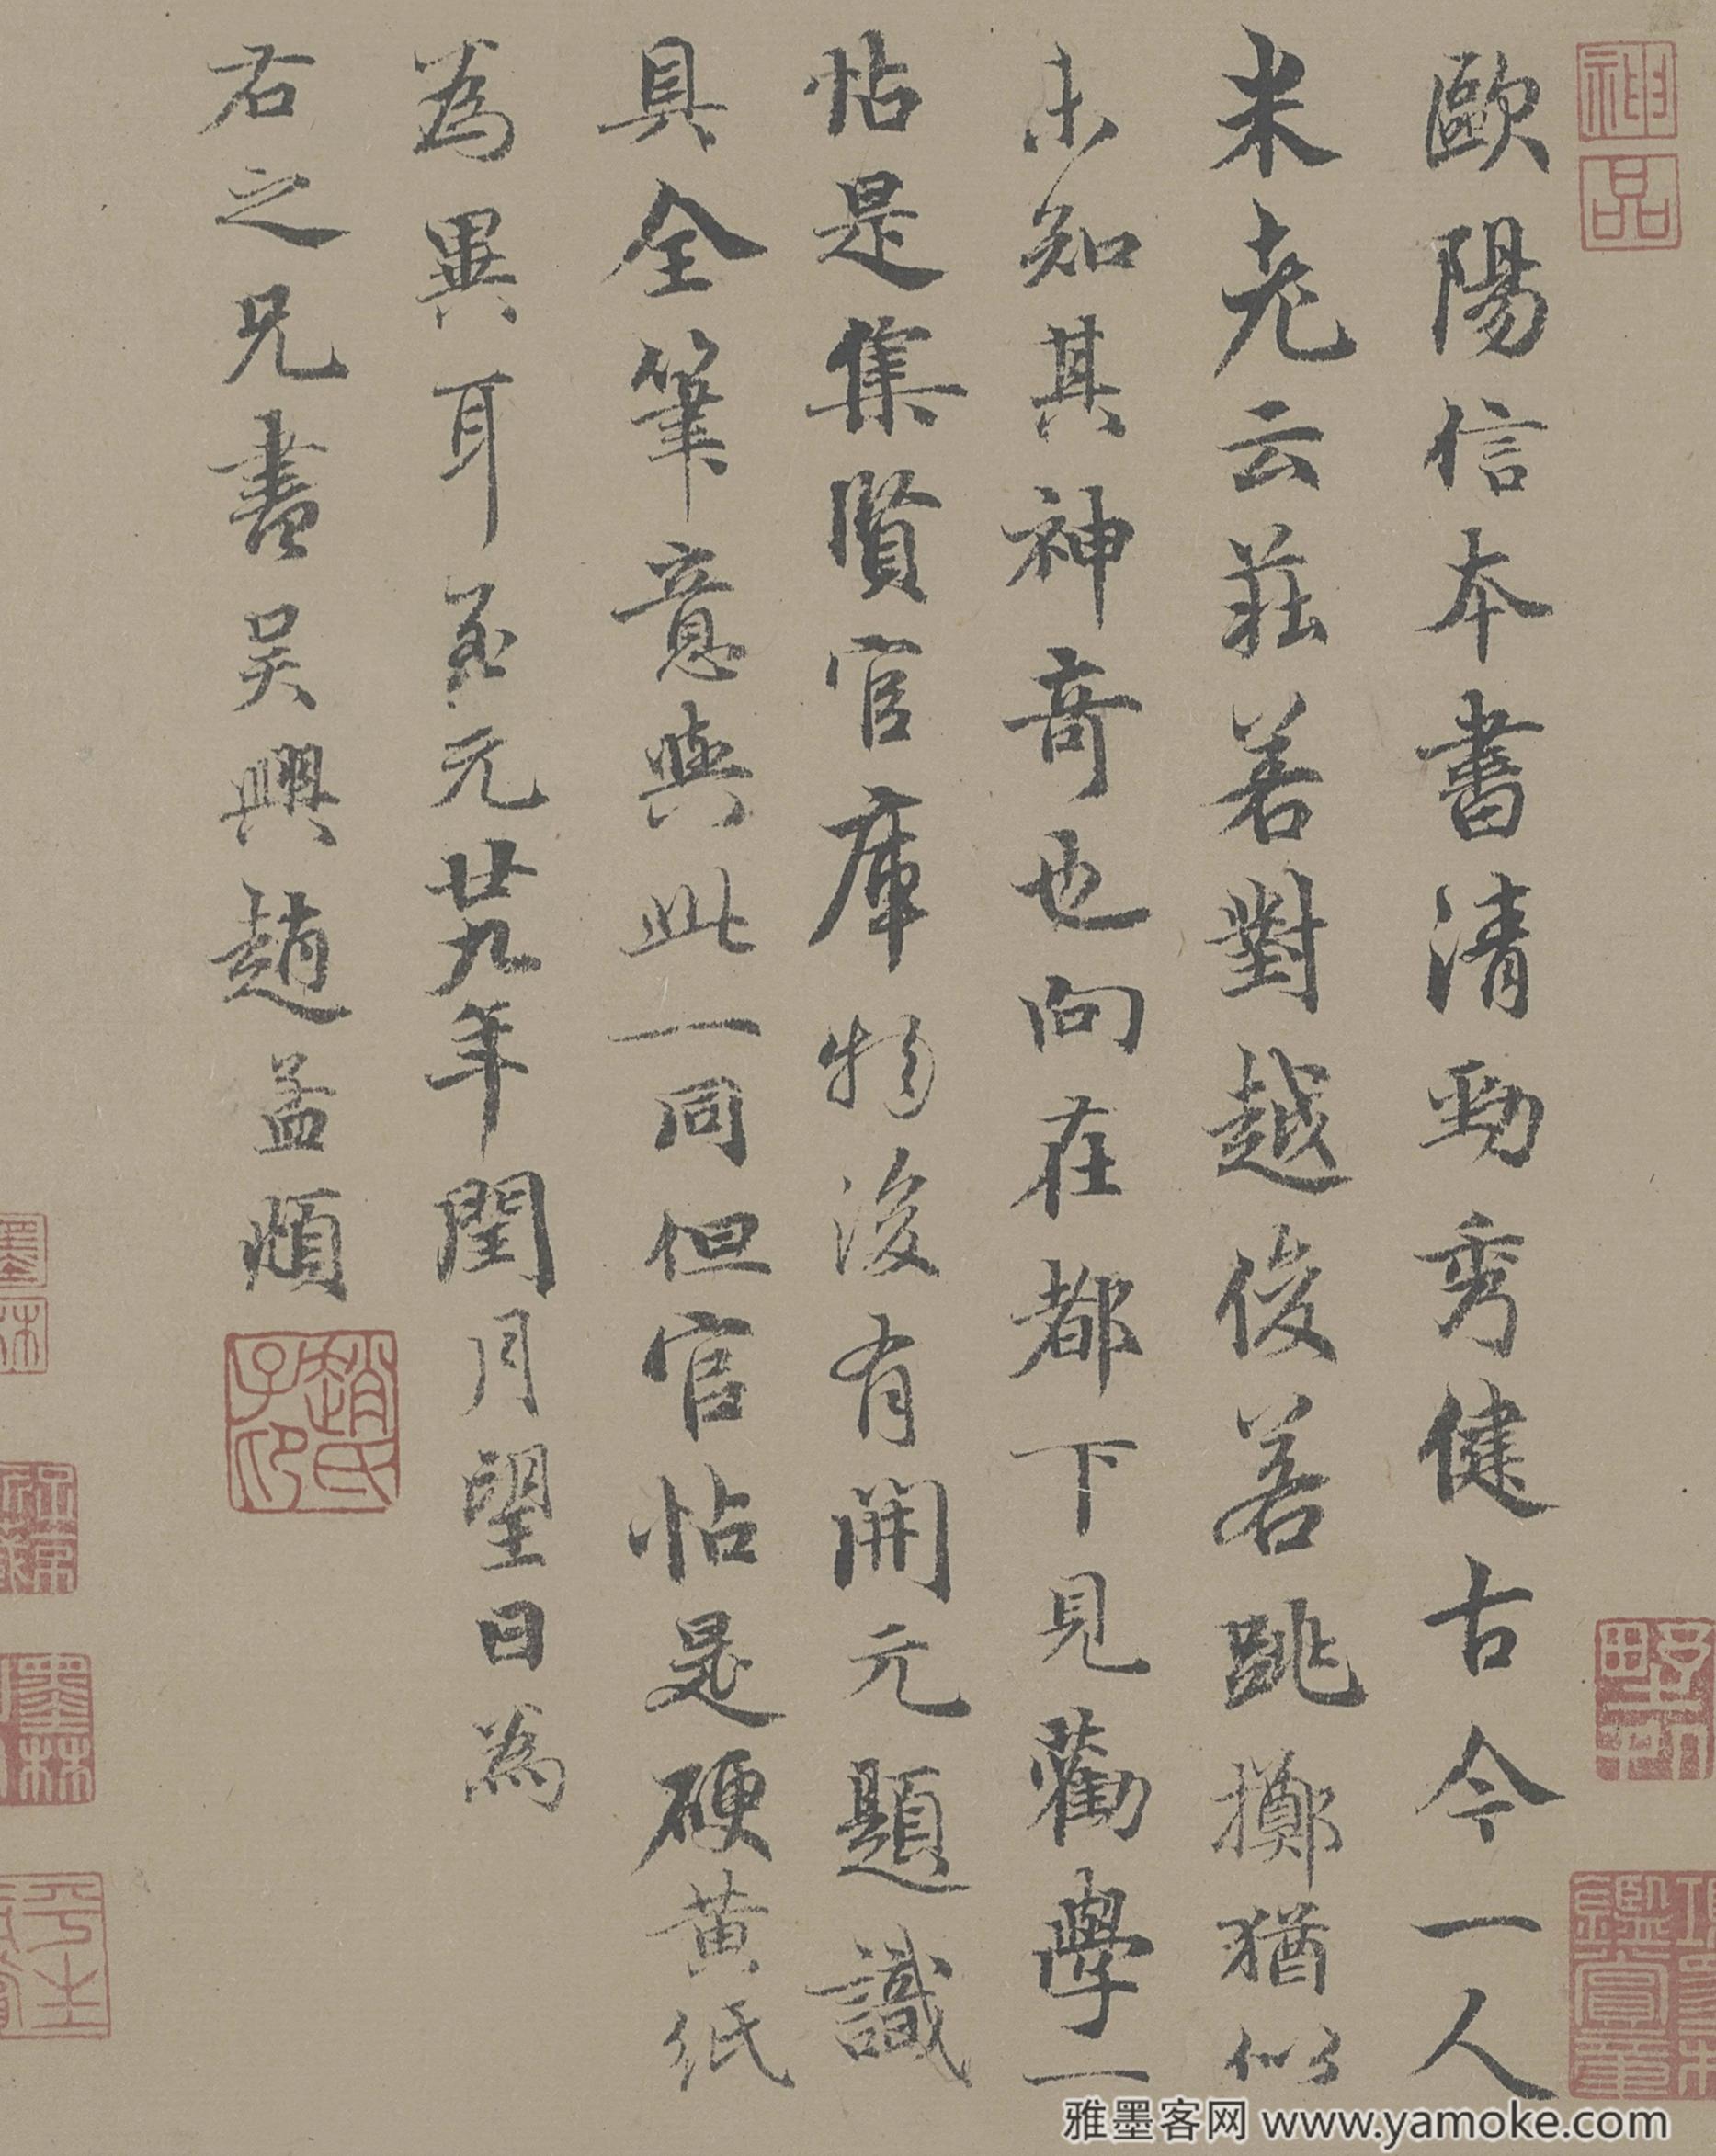 歐陽信本書清勁秀健古今一人
米老云莊若對越俊若跳擲猶似
未知其神奇也向在都下見勸學一
帖是集賢官庫物後有開元題識
具全筆意與此一同但官帖是硬黃紙
為異耳至元廿九年閏月望日為
右之兄書吳興趙孟頫
神品
趙氏子印
雅墨客网 www.yamoke.com